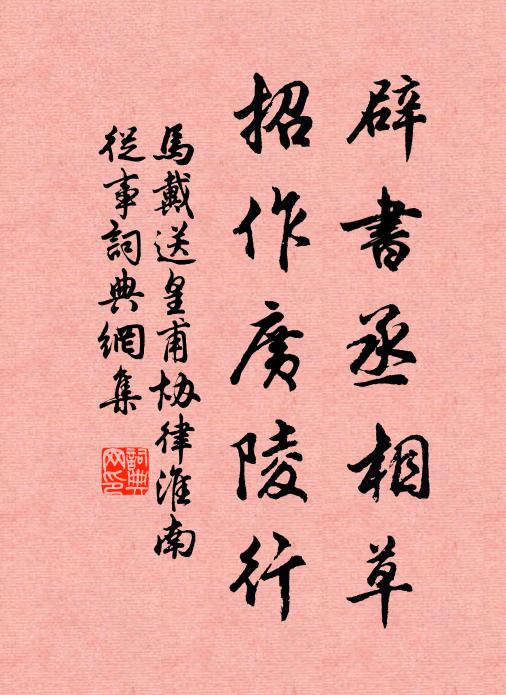 辟書丞相草
招作廣陵行
馬戴送皇甫協律淮南
從事詞典網集
詞典网印